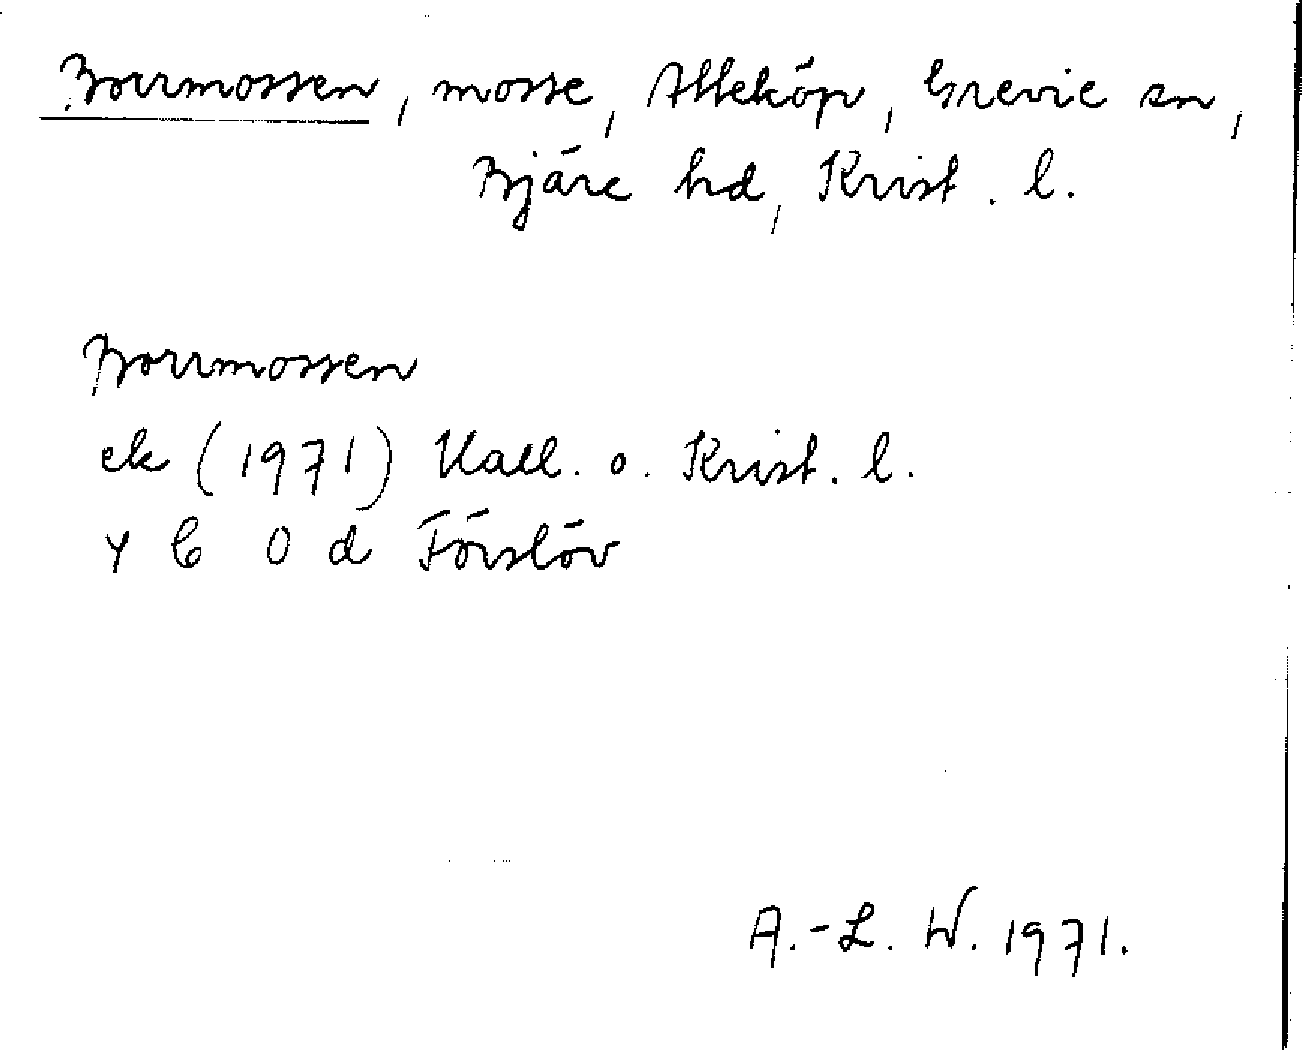 Borrmossen, mosse, Atteköp, Grevie sn,
Bjäre hd, Krist. l.
Borrmossen
ek (1971) Hall. o. Krist. l.
4 C 0 d Förslöv
A.-L. W. 1971.